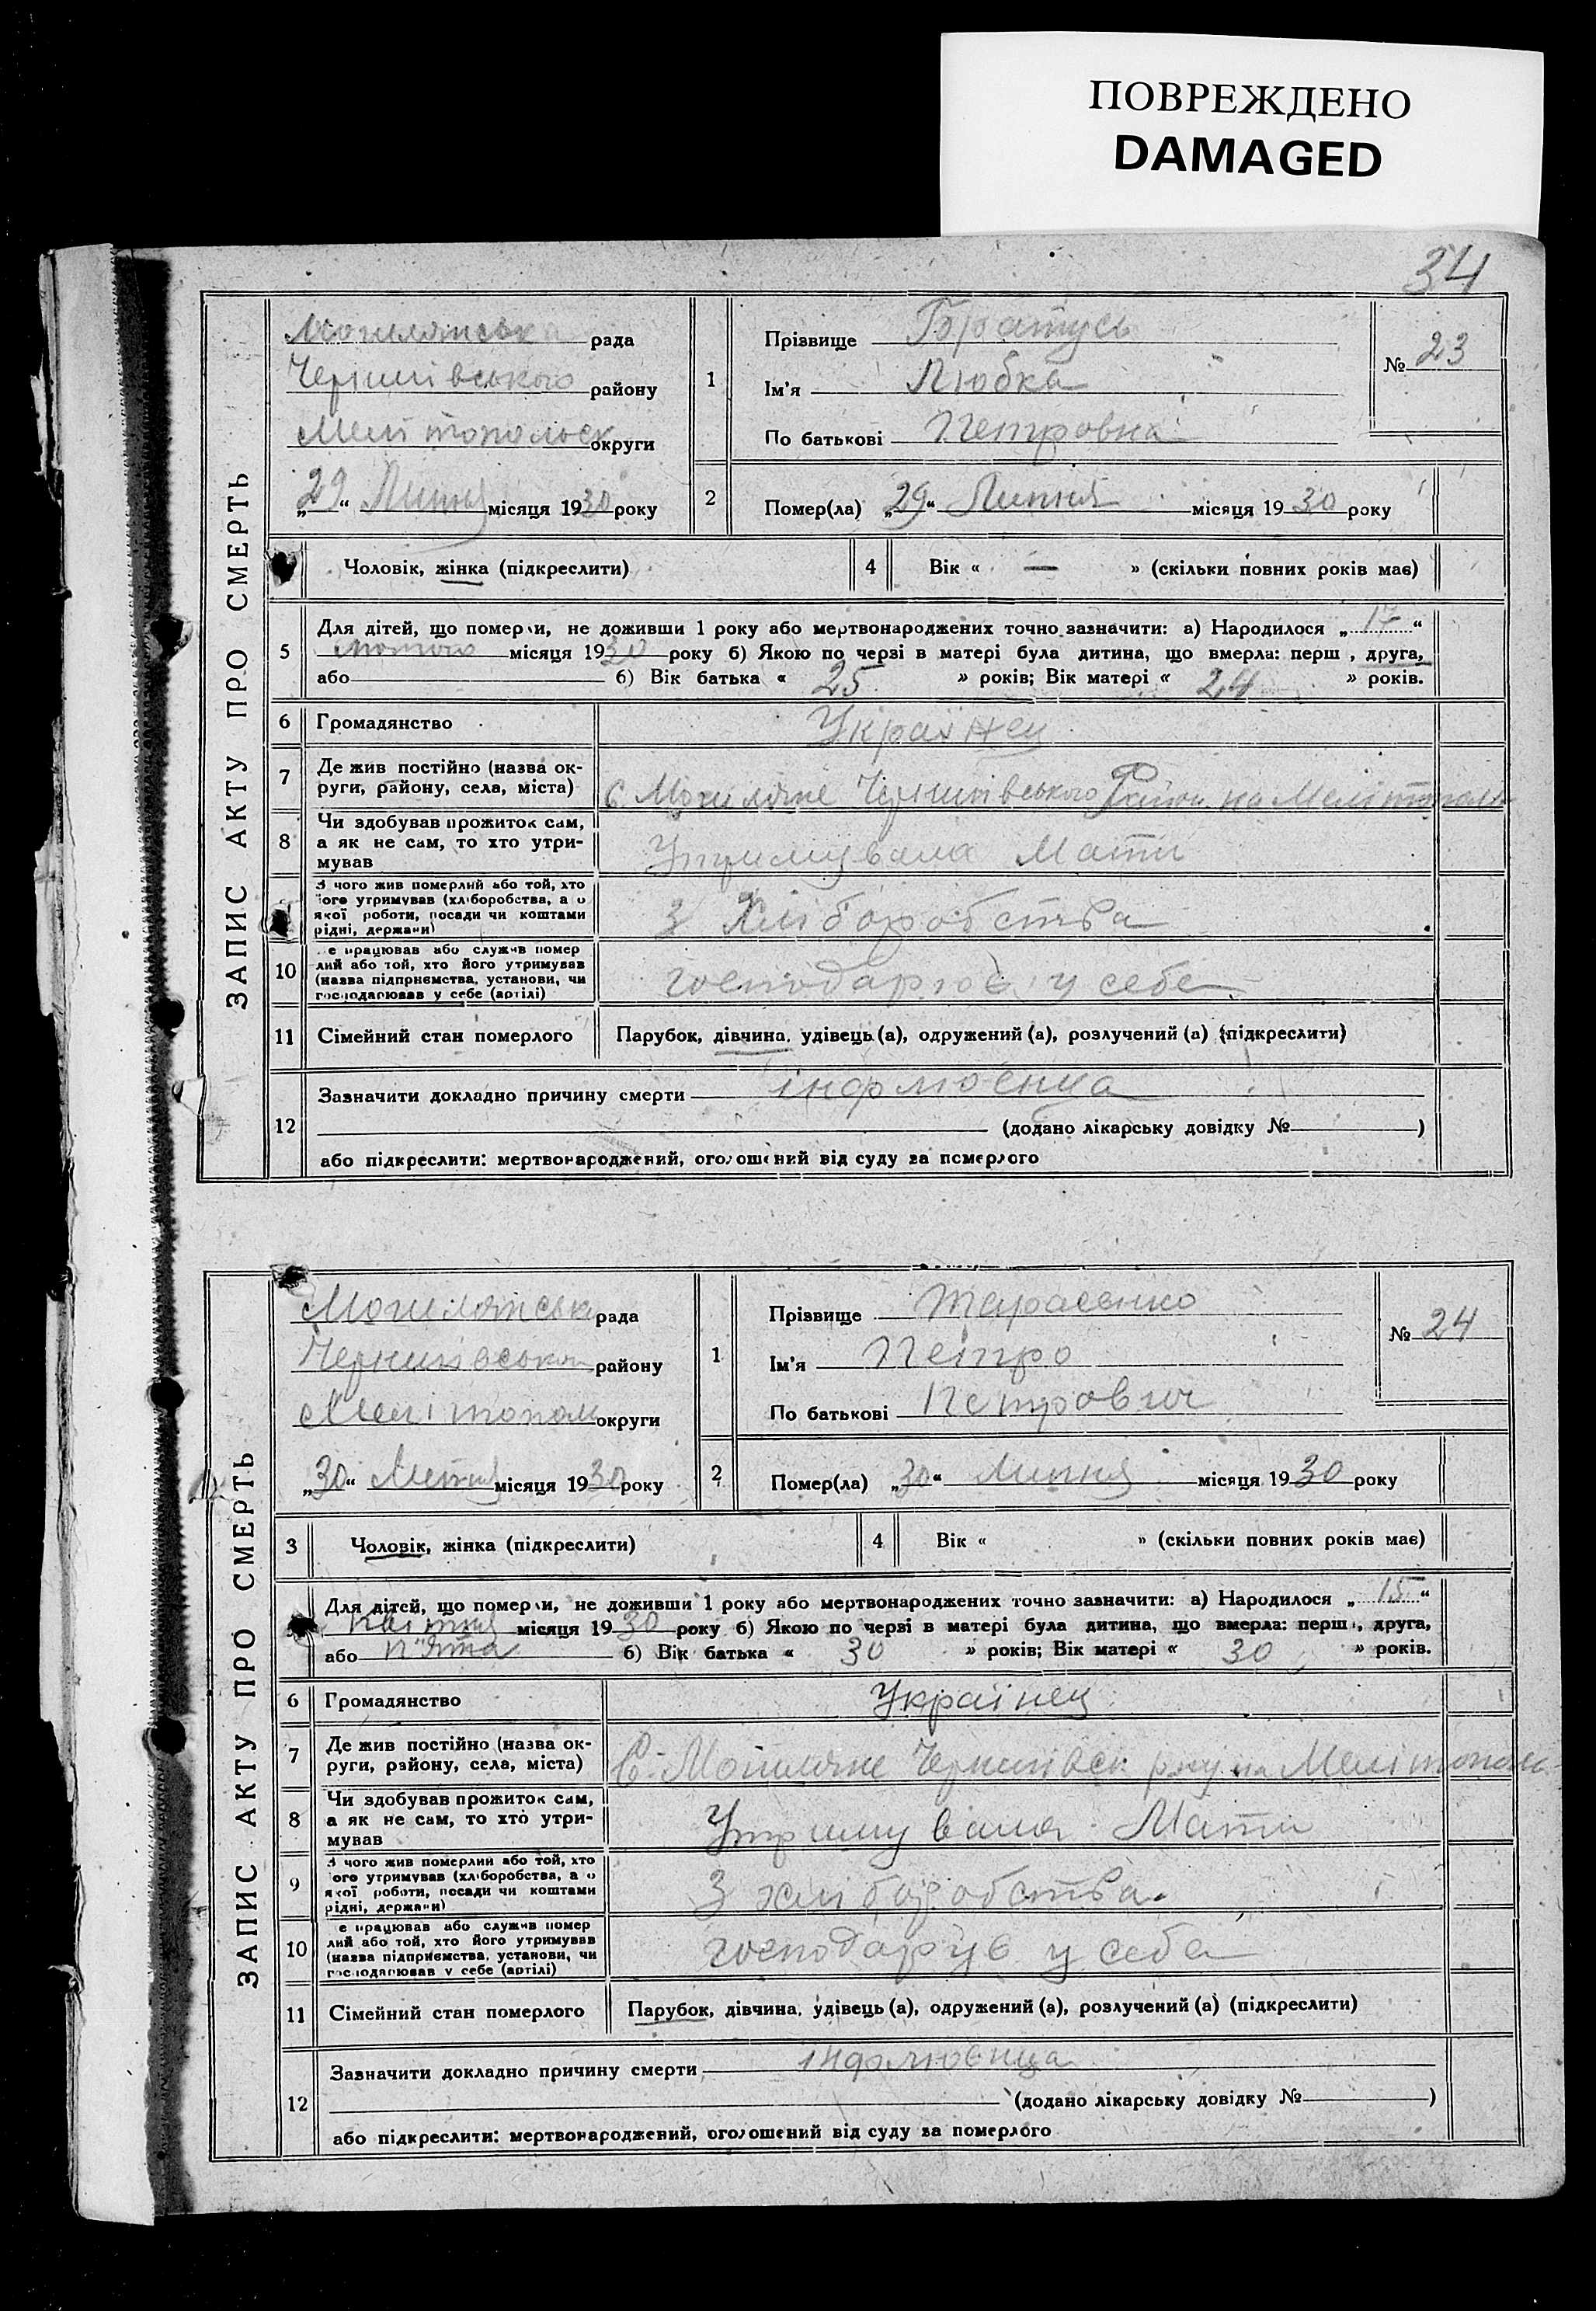 ПОВРЕЖДЕНО
DAMAGED
34
ЗАПИС АКТУ ПРО СМЕРТЬ
Могилянська рада
Чернигівського району
Мелітопольск округи
„29“ Липня місяця 1930 року
1
Прізвище Братусь
Ім'я Любка
По батькові Петровна
№ 23
2
Помер(ла) „29“ Липня місяця 1930 року
Чоловік, жінка (підкреслити)
4
Вік « — » (скільки повних років має)
5
Для дітей, що померли, не доживши 1 року або мертвонароджених точно зазначити: а) Народилося „17“
лютого місяця 1930 року б) Якою по черзі в матері була дитина, що вмерла: перш , друга,
або б) Вік батька « 25 » років; Вік матері « 24 » років.
6 Громадянство Українец
7 Де жив постійно (назва ок-
руги, району, села, міста) с. Могиляне Чернигівського Району на Мелітополь
8 Чи здобував прожиток сам,
а як не сам, то хто утри-
мував Утримувала Мати
З чого жив померлий або той, хто
його утримував (хліборобства, а о
якої роботи, посади чи коштами
рідні, держави) З Хліборобства
10 е працював або служив помер
лий або той, хто його утримував
(назва підприємства, установи, чи
господарював у себе (артілі) господарює у себе
11 Сімейний стан померлого Парубок, дівчина, удівець (а), одружений (а), розлучений (а) (підкреслити)
12 Зазначити докладно причину смерти інфлюенца
(додано лікарську довідку № )
або підкреслити: мертвонароджений, оголошений від суду за померлого
ЗАПИС АКТУ ПРО СМЕРТЬ
Могилянська рада
Чернигівського району
Мелітополь округи
„30“ Липня місяця 1930 року
1
Прізвище Тарасенко
Ім'я Петро
По батькові Петрович
№ 24
2
Помер(ла) „30“ Липня місяця 1930 року
3
Чоловік, жінка (підкреслити)
4
Вік « » (скільки повних років має)
Для дітей, що померли, не доживши 1 року або мертвонароджених точно зазначити: а) Народилося „15“
Квітня місяця 1930 року б) Якою по черзі в матері була дитина, що вмерла: перш , друга,
або п'ята б) Вік батька « 30 » років; Вік матері « 30 » років.
6 Громадянство Українец
7 Де жив постійно (назва ок-
руги, району, села, міста) С. Могиляне Чернигівск р-ну на Мелітополь
8 Чи здобував прожиток сам,
а як не сам, то хто утри-
мував Утримувала Мати
9 З чого жив померлий або той, хто
його утримував (хліборобства, а о
якої роботи, посади чи коштами
рідні, держави) З хліборобства
10 е працював або служив помер
лий або той, хто його утримував
(назва підприємства, установи, чи
господарював у себе (артілі) господарує у себе
11 Сімейний стан померлого Парубок, дівчина, удівець (а), одружений (а), розлучений (а) (підкреслити)
12 Зазначити докладно причину смерти інфлюенца
(додано лікарську довідку № )
або підкреслити: мертвонароджений, оголошений від суду за померлого